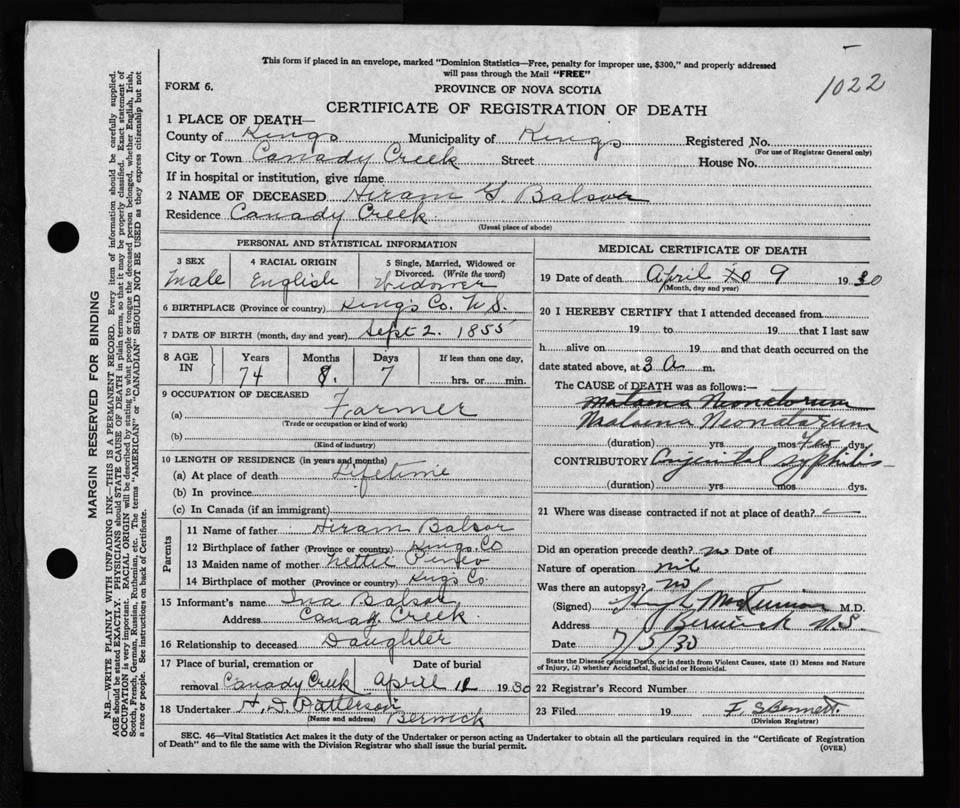 This form if placed in an envelope, marked "Dominion Statistics—Free, penalty for improper use, $300," and properly addressed
will pass through the Mail "FREE"
1022
FORM 6.
PROVINCE OF NOVA SCOTIA
CERTIFICATE OF REGISTRATION OF DEATH
1 PLACE OF DEATH—
County of Kings Municipality of Kings Registered No.
(For use of Registrar General only)
City or Town Canady Creek Street House No.
If in hospital or institution, give name
2 NAME OF DECEASED Hiram G. Balsor
Residence Canady Creek
(Usual place of abode)
PERSONAL AND STATISTICAL INFORMATION
3 SEX 4 RACIAL ORIGIN 5 Single, Married, Widowed or Divorced. (Write the word)
Male English Widower
6 BIRTHPLACE (Province or country) Kings Co. N.S.
7 DATE OF BIRTH (month, day and year) Sept 2. 1855
8 AGE IN Years Months Days If less than one day,
74 8. 7 hrs. or min.
9 OCCUPATION OF DECEASED
(a) Farmer
(Trade or occupation or kind of work)
(b)
(Kind of industry)
10 LENGTH OF RESIDENCE (in years and months)
(a) At place of death Lifetime
(b) In province
(c) In Canada (if an immigrant)
Parents
11 Name of father Hiram Balsor
12 Birthplace of father (Province or country) Kings. Co
13 Maiden name of mother Nettie Pineo
14 Birthplace of mother (Province or country) Kings Co.
15 Informant's name Ina Balsor
Address Canady Creek
16 Relationship to deceased Daughter
17 Place of burial, cremation or removal Canady Creek Date of burial April 11 1930
18 Undertaker H. D. Patterson
(Name and address) Berwick
MEDICAL CERTIFICATE OF DEATH
19 Date of death April 9 1930
(Month, day and year)
20 I HEREBY CERTIFY that I attended deceased from
19 to 19 that I last saw
h alive on 19 and that death occurred on the
date stated above, at 3 a m.
The CAUSE of DEATH was as follows:—
Malaena Neonatorum
Malaena Neonatorum
(duration) yrs. mos. two dys.
CONTRIBUTORY Congenital syphilis
(duration) yrs. mos dys.
21 Where was disease contracted if not at place of death?
Did an operation precede death? no Date of
Nature of operation nil
Was there an autopsy? no
(Signed) Hugh M.D.
Address Berwick N.S.
Date 7/5/30
State the Disease causing Death, or in death from Violent Causes, state (1) Means and Nature
of Injury, (2) whether Accidental, Suicidal or Homicidal.
22 Registrar's Record Number
23 Filed 19 F. S Bennett.
(Division Registrar)
SEC. 46—Vital Statistics Act makes it the duty of the Undertaker or person acting as Undertaker to obtain all the particulars required in the "Certificate of Registration
of Death" and to file the same with the Division Registrar who shall issue the burial permit.
(OVER)
MARGIN RESERVED FOR BINDING
N.B.—WRITE PLAINLY WITH UNFADING INK—THIS IS A PERMANENT RECORD. Every item of information should be carefully supplied.
AGE should be stated EXACTLY. PHYSICIANS should STATE CAUSE OF DEATH in plain terms, so that it may be properly classified. Exact statement of
OCCUPATION is very important. RACIAL ORIGIN will be described by stating to what people or tongue the deceased person belonged, whether English, Irish,
Scotch, French, German, Russian, Ruthenian, etc. The terms "AMERICAN" or "CANADIAN" SHOULD NOT BE USED as they express citizenship but not
a race or people. See instructions on back of Certificate.